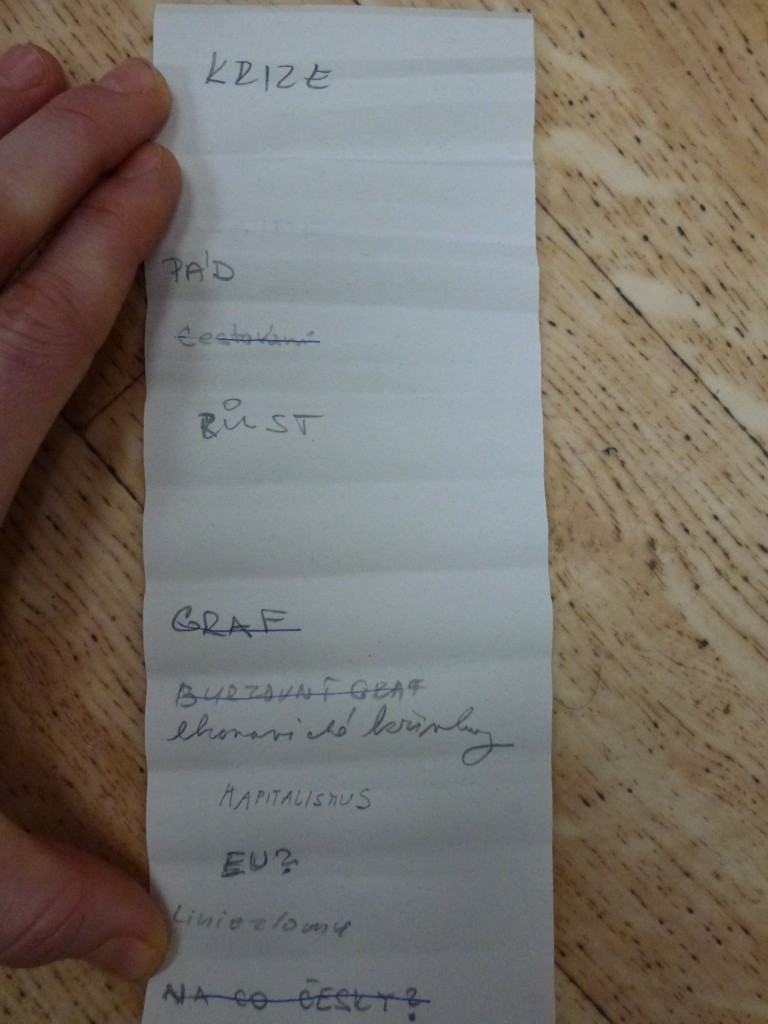 KRIZE
PÁD
cestování
RŮST
GRAF
BURZOVNÍ GRAF
ekonomické křivky
KAPITALISMUS
EU?
Linie zlomu
NA CO ČESKY?